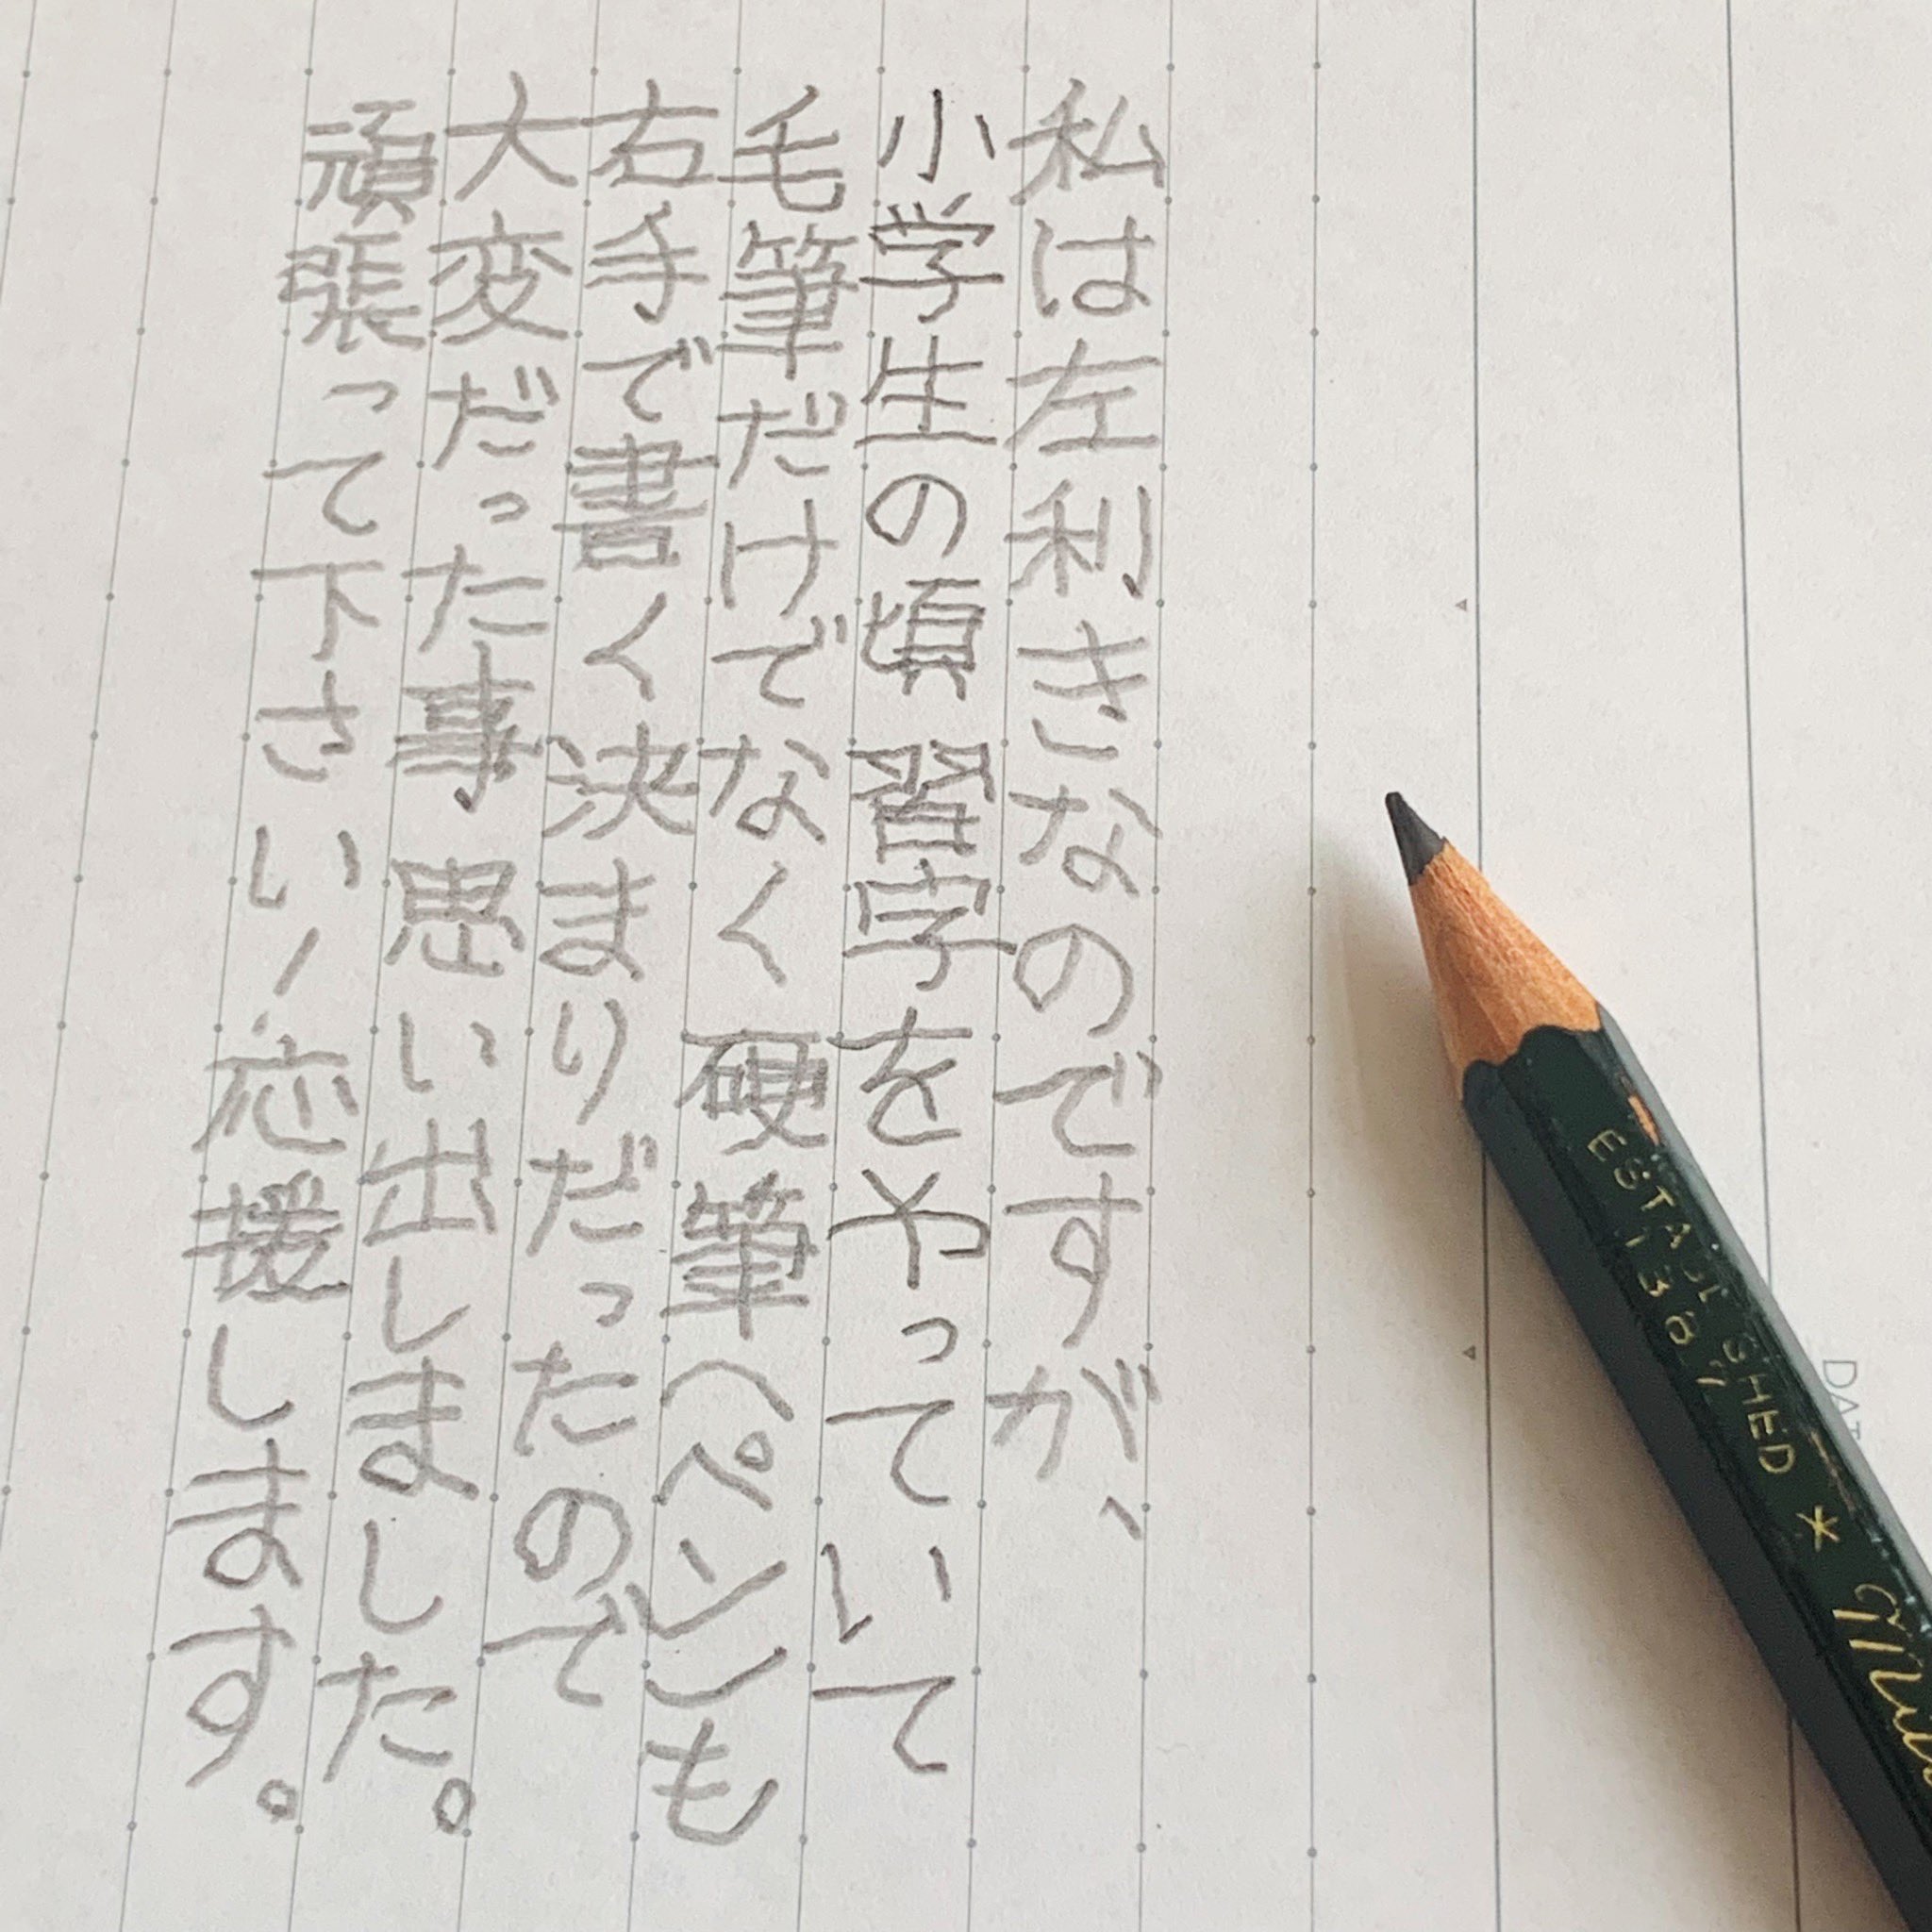 私は左利きなのですが、
小学生の頃習字をやっていて
毛筆だけでなく硬筆(ペン)も
右手で書く決まりだったので
大変だった事思い出しました。
頑張って下さい!応援します。
ESTABLISHED
1887